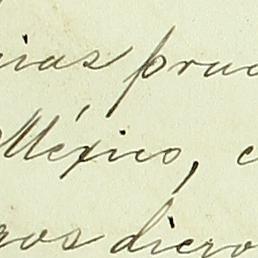 ias prue
México, c
ros diero